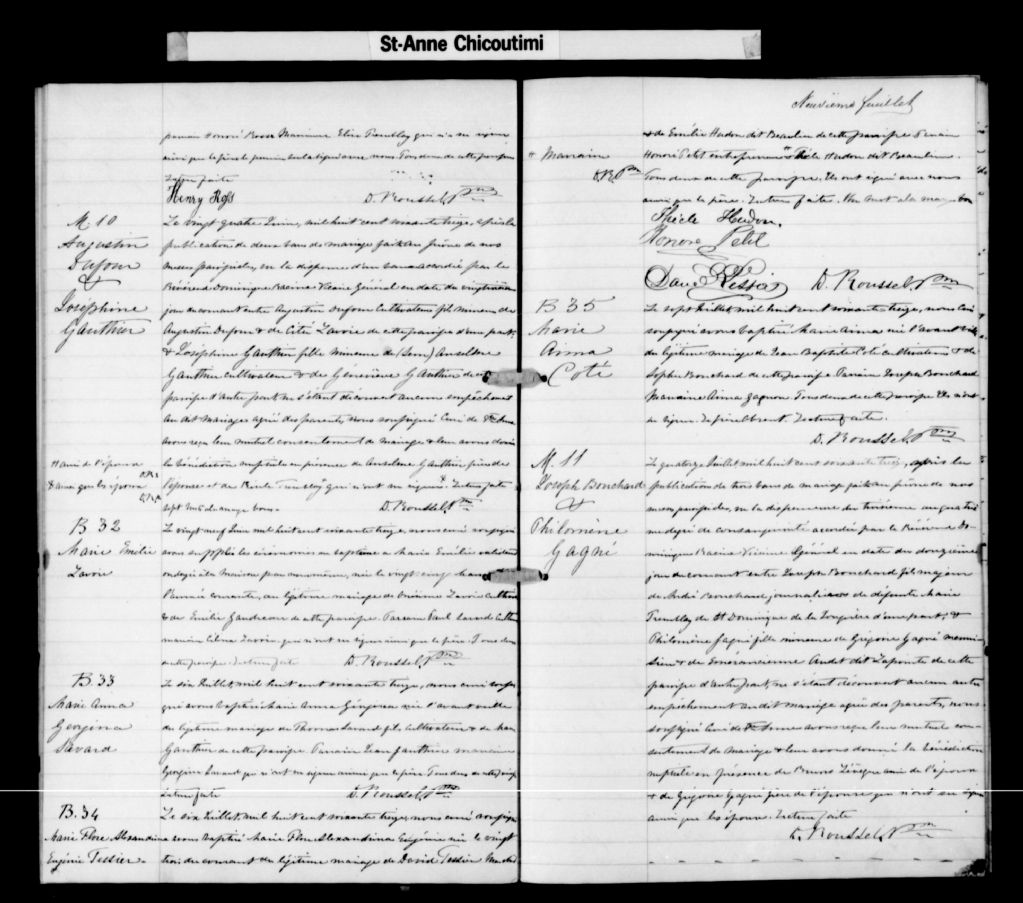 St-Anne Chicoutimi
Neuvième feuillet
parrain Honoré Marraine Elise Tremblay qui n'a su signer
ainsi que le père nous Tous deux de cette paroisse
Lecture faite
Henry Ross D. Roussel, Ptre
M 10
Augustin
Dufour
&
Joséphine
Gauthier
Le vingt quatre Juin, mil huit cent soixante treize, après la
publication de deux bans de mariage faite au prône de nos
messes paroissiales, vu la dispense d'un ban accordée par le
Révérend Dominique Racine Vicaire Général en date du vingt
jour du courant entre Augustin Dufour Cultivateur fils mineur de
Augustin Dufour & de Lavoie de cette paroisse d'une part,
& Joséphine Gauthier fille mineure de Anselme
Gauthier cultivateur & de Geneviève Gauthier de cette
paroisse d'autre part ne s'étant découvert aucun empêchement
au dit mariage agréé des parents, nous soussigné Curé de Ste Anne
avons reçu leur mutuel consentement de mariage & leur avons donné
la bénédiction nuptiale en présence de Anselme Gauthier père de
l'épouse et de Tremblay qui n'ont su signer. Lecture faite
sept mots de marge bons. D. Roussel, Ptre
ami de l'époux
& ainsi que les époux
D.R. Ptre
B 32
Marie Emélie
Lavoie
Le vingt neuf Juin mil huit cent soixante treize nous curé soussigné
avons suppléé les cérémonies du baptême à Marie Emélie
ondoyée à la maison née le vingt cinq
l'année courante, du légitime mariage de Lavoie
& de Emélie Gaudreau de cette paroisse. Parrain Paul
marraine Lavoie qui n'ont su signer ainsi que le père Tous deux
de cette paroisse. Lecture faite D. Roussel, Ptre
B. 33
Marie Anna
Georgina
Savard
Le six Juillet, mil huit cent soixante treize, nous curé soussi
gné avons baptisé Marie Anna Georgina née l'avant veille
du légitime mariage de Thomas Savard fils Cultivateur & de
Gauthier de cette paroisse Parrain Jean Gauthier marraine
Georgina Savard qui n'ont su signer ainsi que le père Tous deux de cette paroisse
Lecture faite D. Roussel, Ptre
B. 34
Marie Flore Alexandrina
Eugénie Tessier
Le six Juillet, mil huit cent soixante treize, nous curé soussigné
avons baptisé Marie Flore Alexandrina Eugénie née le vingt
trois du courant du légitime mariage de David Tessier
& de Emélie Hudon dit Beaulieu de cette paroisse Parrain
Honoré Petit entrepreneur Thècle Hudon dit Beaulieu.
Tous deux de cette paroisse. Ils ont signé avec nous
ainsi que le père. Lecture faite. Un mot à la marge bon
Marraine
D.R. Ptre
Thècle Hudon.
Honoré Petit
David Tessier D. Roussel, Ptre
B 35
Marie
Anna
Coté
Le sept Juillet, mil huit cent soixante treize, nous Curé
soussigné avons baptisé Marie Anna née l'avant veille
du légitime mariage de Jean Baptiste Coté cultivateur & de
Sophie Bouchard de cette paroisse Parrain Joseph Bouchard
marraine Anna Gagnon Tous deux de cette paroisse Ils n'ont
su signer. Le père absent. Lecture faite.
D. Roussel, Ptre
M. 11
Joseph Bouchard
&
Philomène
Gagné
Le quatorze Juillet mil huit cent soixante treize, après la
publication de trois bans de mariage faite au prône de nos
messes paroissiales, vu la dispense du troisième au quatrième
degré de consanguinité accordée par le Révérend Do
minique Racine Vicaire Général en date du douzième
jour du courant entre Joseph Bouchard fils majeur
de André Bouchard journalier & de défunte Marie
Tremblay de St Dominique de la Jonquière d'une part, &
Philomène Gagné fille mineure de Grégoire Gagné menui
sier & de Audet dit Lapointe de cette
paroisse d'autre part, ne s'étant découvert aucun autre
empêchement au dit mariage agréé des parents, nous
soussigné Curé de Ste Anne avons reçu leur mutuel con
sentement de mariage & leur avons donné la bénédiction
nuptiale en présence de Bruno Lévesque ami de l'époux
& de Grégoire Gagné père de l'épouse qui n'ont su signer
ainsi que les époux. Lecture faite
D. Roussel, Ptre